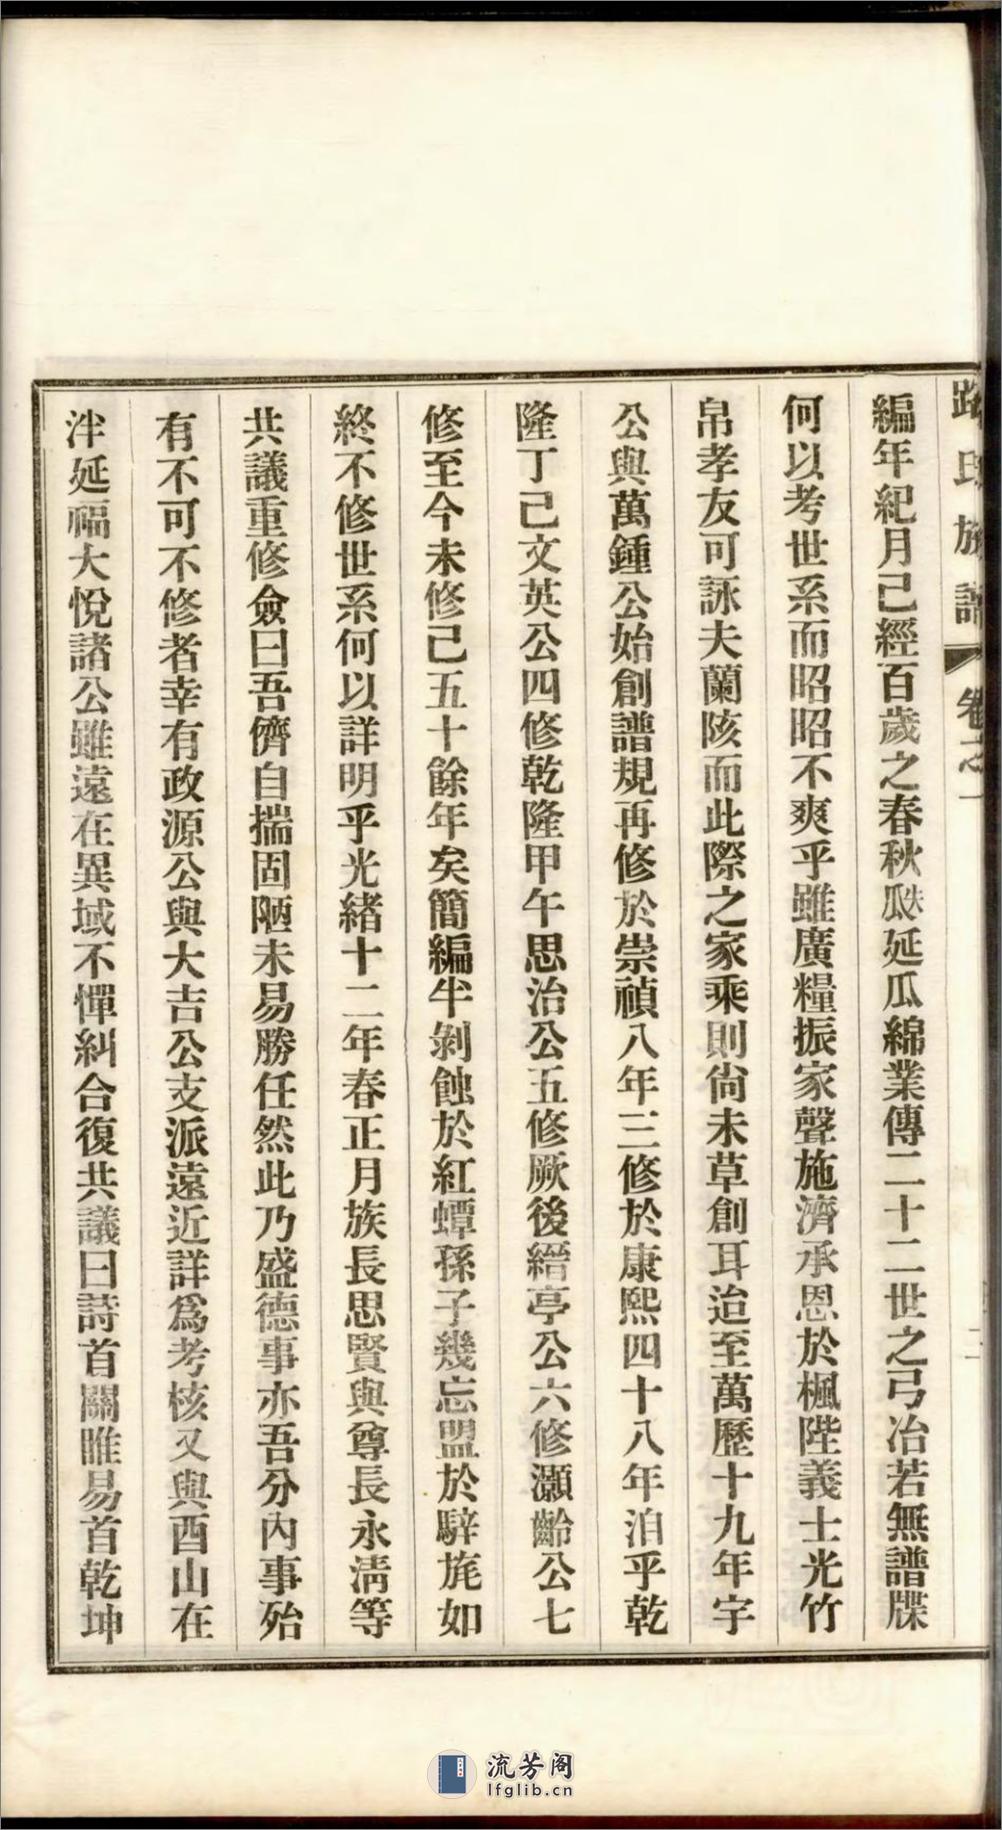 路氏族譜 卷之一 二
編年紀月已經百歲之春秋瓞延瓜綿業傳二十二世之弓冶若無譜牒
何以考世系而昭昭不爽乎雖廣糧振家聲施濟承恩於楓陛義士光竹
帛孝友可詠夫蘭陔而此際之家乘則尙未草創耳迨至萬歷十九年宇
公與萬鍾公始創譜規再修於崇禎八年三修於康熙四十八年洎乎乾
隆丁己文英公四修乾隆甲午思治公五修厥後縉亭公六修灝齡公七
修至今未修己五十餘年矣簡編半剝蝕於紅蟫孫子幾忘盟於騂旄如
終不修世系何以詳明乎光緒十二年春正月族長思賢與尊長永淸等
共議重修僉曰吾儕自揣固陋未易勝任然此乃盛德事亦吾分內事殆
有不可不修者幸有政源公與大吉公支派遠近詳爲考核又與酉山在
泮延福大悅諸公雖遠在異域不憚糾合復共議曰詩首關雎易首乾坤
流芳阁
lfglib.cn